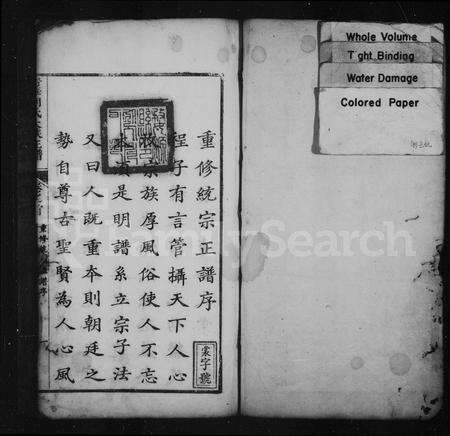 重修統宗正譜序
程子有言管攝天下人心
收宗族厚風俗使人不忘
本須是明譜系立宗子法
又曰人既重本則朝廷之
勢自尊古聖賢為人心風
裳字號
Whole Volume
Tight Binding
Water Damage
Colored Paper
FamilySearch